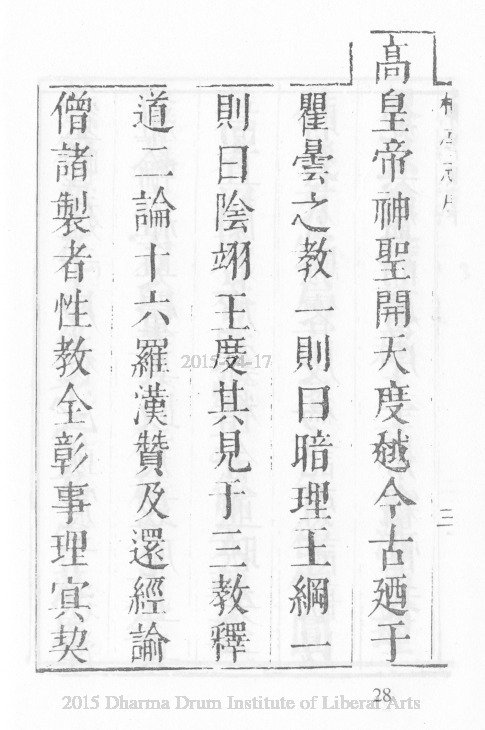 高皇帝神聖開天度越今古廼于
瞿曇之教一則曰暗理王綱一
則曰陰翊王度其見于三教釋
道二論十六羅漢贊及還經論
僧諸製者性教全彰事理冥契
三
2015-04-17
28
2015 Dharma Drum Institute of Liberal Arts